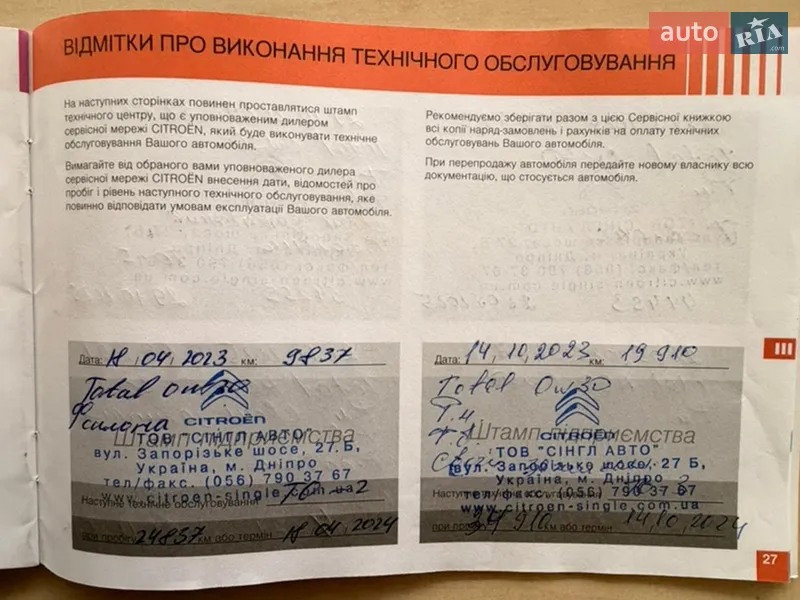 auto RIA.com
ВІДМІТКИ ПРО ВИКОНАННЯ ТЕХНІЧНОГО ОБСЛУГОВУВАННЯ
На наступних сторінках повинен проставлятися штамп
технічного центру, що є уповноваженим дилером
сервісної мережі CITROËN, який буде виконувати технічне
обслуговування Вашого автомобіля.
Вимагайте від обраного вами уповноваженого дилера
сервісної мережі CITROËN внесення дати, відомостей про
пробіг і рівень наступного технічного обслуговування, яке
повинно відповідати умовам експлуатації Вашого автомобіля.
Рекомендуємо зберігати разом з цією Сервісної книжкою
всі копії наряд-замовлень і рахунків на оплату технічних
обслуговувань Вашого автомобіля.
При перепродажу автомобіля передайте новому власнику всю
документацію, що стосується автомобіля.
Дата: 18 / 04 / 2023 км: 9837
Total 0w30
CITROËN
Штамп підприємства
ТОВ "СІНГЛ АВТО"
вул. Запорізьке шосе, 27 Б,
Україна, м. Дніпро
тел/факс. (056) 790 37 67
www.citroen-single.com.ua
Наступне технічне обслуговування ТО-2
при пробігу 24837 км або термін 18 04 2024
Дата: 14, 10, 2023 км: 19 910
Total 0w30
CITROËN
Штамп підприємства
ТОВ "СІНГЛ АВТО"
вул. Запорізьке шосе, 27 Б,
Україна, м. Дніпро
тел/факс. (056) 790 37 67
www.citroen-single.com.ua
при пробігу 34 910 км або термін 14, 10, 2024
III
27